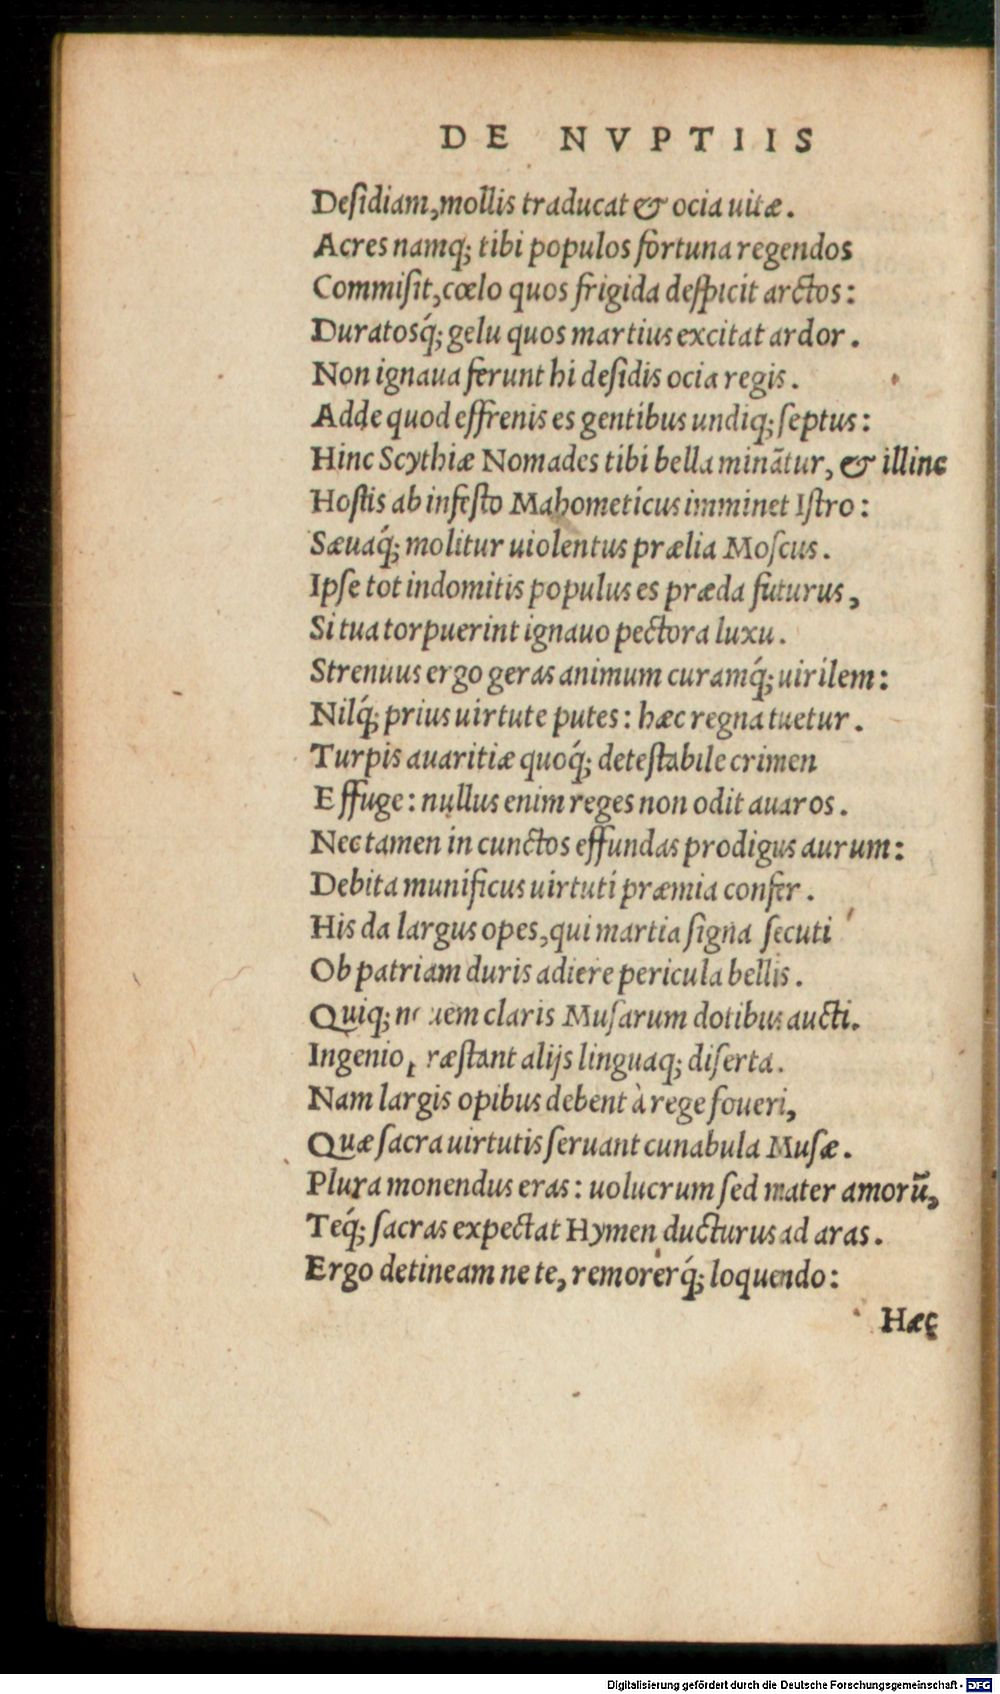 DE NVPTIIS
Desidiam, mollis traducat & ocia uitæ.
Acres namq; tibi populos fortuna regendos
Commisit, cœlo quos frigida despicit arctos:
Duratosq́; gelu quos martius excitat ardor.
Non ignaua ferunt hi desidis ocia regis.
Adde quod effrenis es gentibus undiq; septus:
Hinc Scythiæ Nomades tibi bella minãtur, & illinc
Hostis ab infesto Mahometicus imminet Istro:
Sæuaq́; molitur uiolentus prælia Moscus.
Ipse tot indomitis populus es præda futurus,
Si tua torpuerint ignauo pectora luxu.
Strenuus ergo geras animum curamq́; uirilem:
Nilq́; prius uirtute putes: hæc regna tuetur.
Turpis auaritiæ quoq́; detestabile crimen
Effuge: nullus enim reges non odit auaros.
Nec tamen in cunctos effundas prodigus aurum:
Debita munificus uirtuti præmia confer.
His da largus opes, qui martia signa secuti
Ob patriam duris adiere pericula bellis.
Quiq; claris Musarum dotibus aucti.
Ingenio, præstant alijs linguaq; diserta.
Nam largis opibus debent à rege foueri,
Quæ sacra uirtutis seruant cunabula Musæ.
Plura monendus eras: uolucrum sed mater amorũ,
Teq́; sacras expectat Hymen ducturus ad aras.
Ergo detineam ne te, remorerq́; loquendo:
Hæc
Digitalisierung gefördert durch die Deutsche Forschungsgemeinschaft - DFG